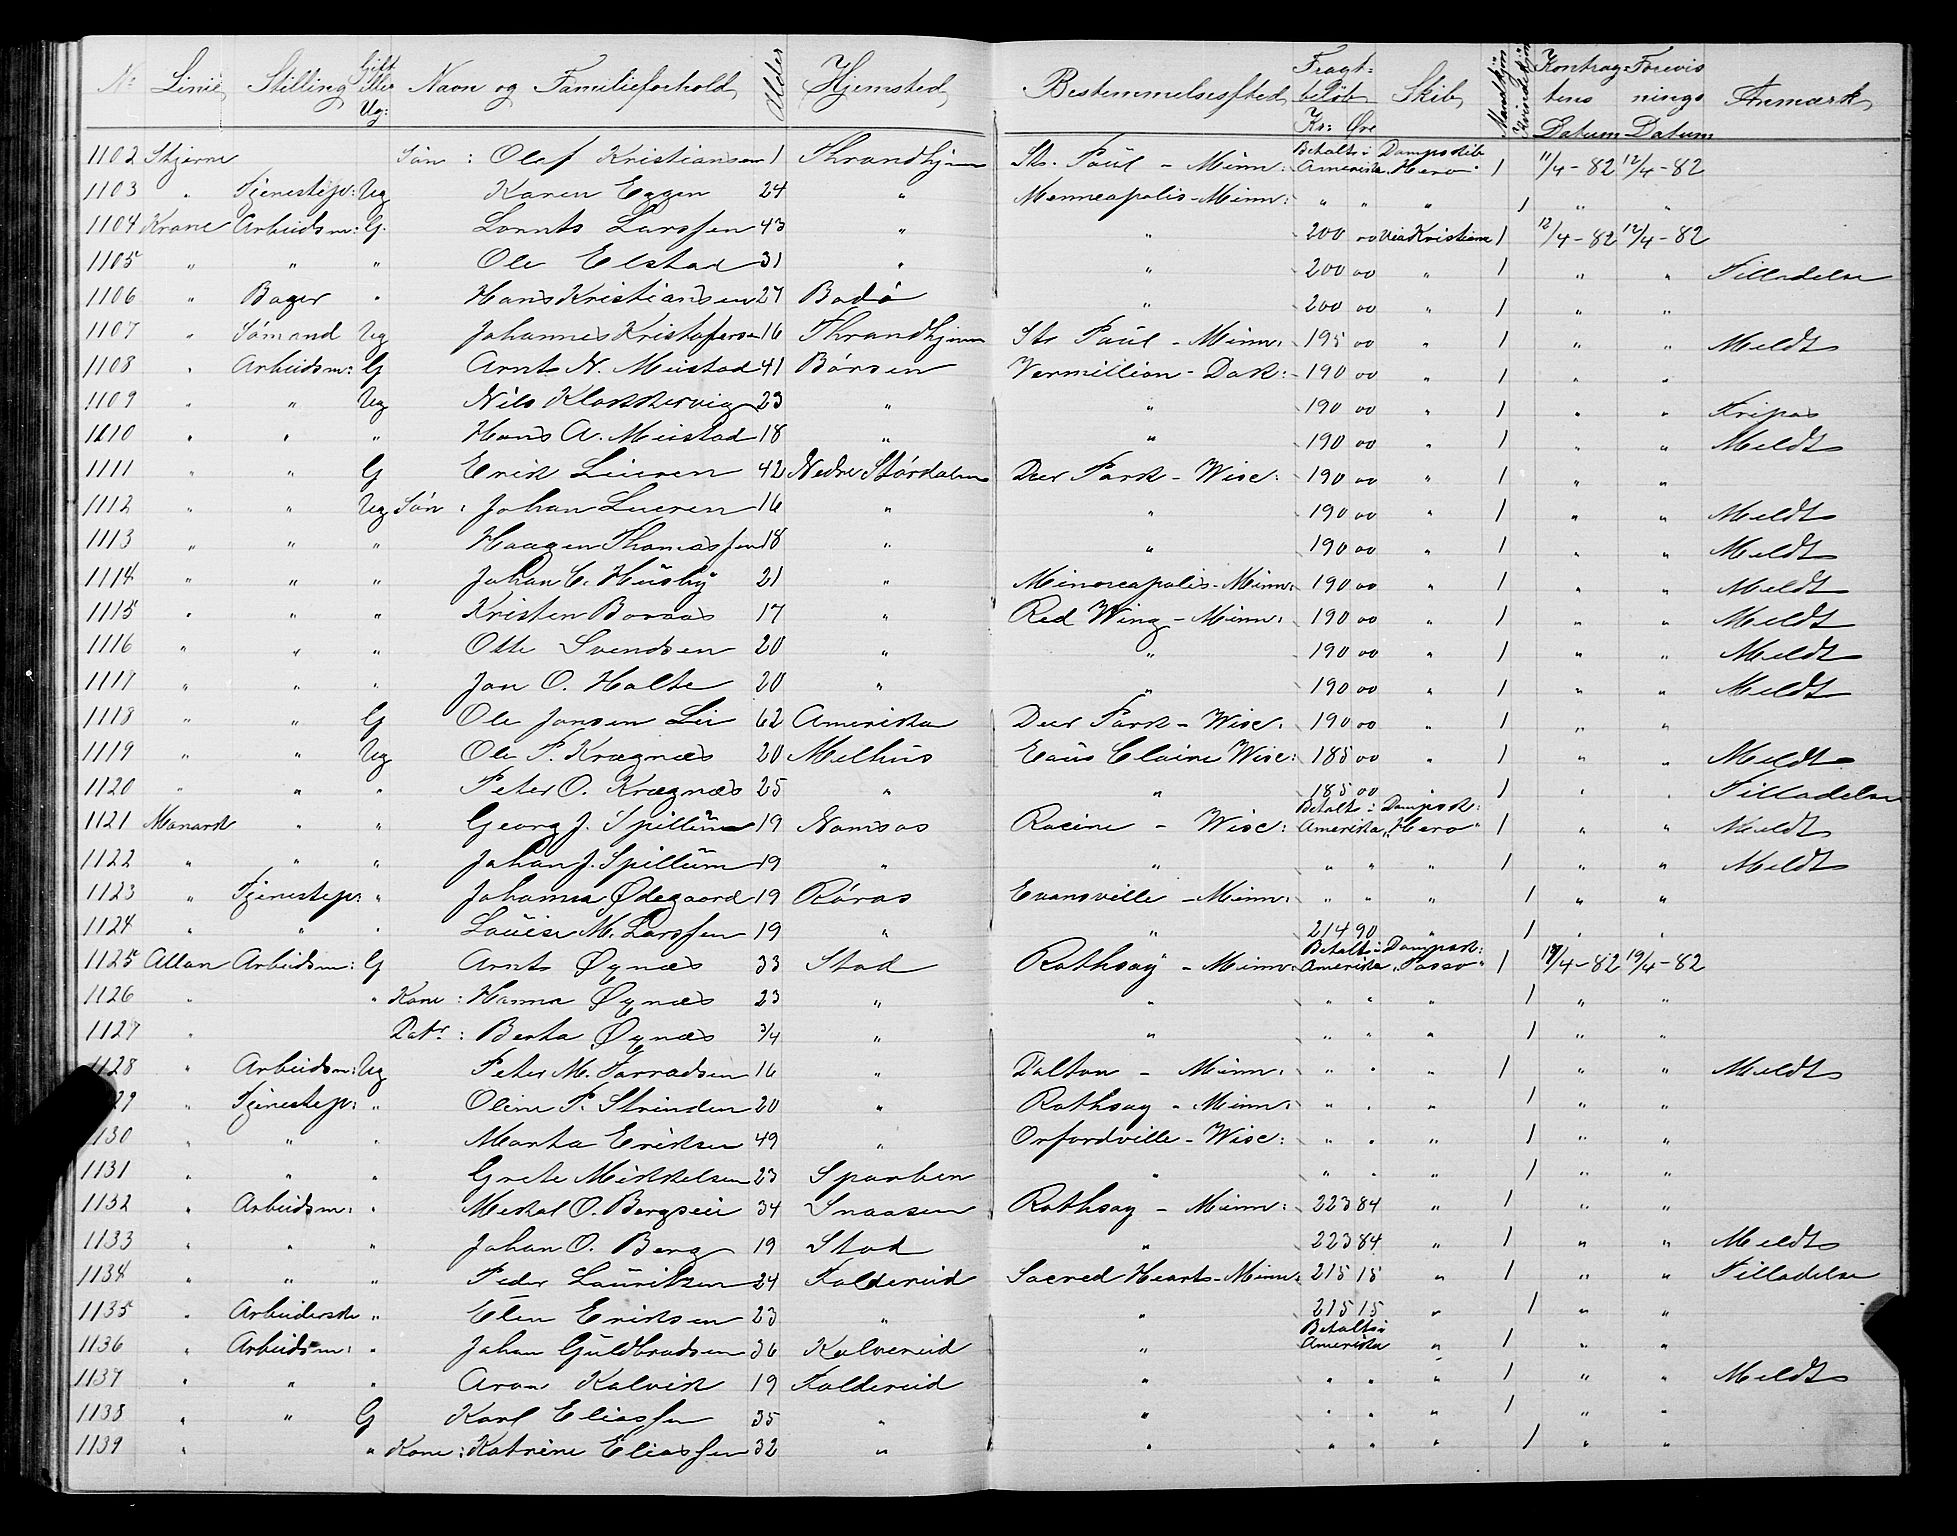 No Linie, Stilling, Gift eller Ug: Navn og Familieforhold, Alder Hjemsted, Bestemmelsessted, Fragtbeløb Kr: Øre Skib, Mandkjøn Kvindekjøn Kontragtens Datum Forevisnings Datum Anmærk,
1102 Stjerne Søn: Olef Kristiansen 1 Thrandhjem St. Paül - Minn: Betalt i Amerika Dampskib "Hero" 1 11/4-82 12/4-82
1103 " Tjenestep: Ug Karen Eggen 24 " Menneapolis-Minn: " " " 1 " "
1104 Krane Arbeidsm: G. Lornts Larssen 43 " " 200 00 via Kristiania 1 12/4-82 12/4-82
1105 " " " Ole Elstad 31 " " 200 00 " 1 " " Tilladelse
1106 " Bager " Hans Kristiansen 27 Bodø " 200 00 " 1 " "
1107 " Sømand Ug Johannes Kristofersen 16 Thrandhjem St. Paül - Minn: 195 00 " 1 " " Meldt
1108 " Arbeidsm: G Arnt N. Meistad 41 Børsen Vermillion - Dak: 190 00 " 1 " "
1109 " " Ug Nils Klokkervig 23 " " 190 00 " 1 " " Fripas
1110 " " " Hans A. Meistad 18 " " 190 00 " 1 " " Meldt
1111 " " G Erik Lieren 42 Nedre Størdalen Deer Park - Wisc: 190 00 " 1 " "
1112 " " Ug Søn: Johan Lieren 16 " " 190 00 " 1 " " Meldt
1113 " " " Haagen Thomassen 18 " " 190 00 " 1 " " Meldt
1114 " " " Johan C. Hüsby 21 " Minneapolis-Minn: 190 00 " 1 " " Meldt
1115 " " " Kristen Boraas 17 " Red Wing - Minn: 190 00 " 1 " " Meldt
1116 " " " Otte Svendsen 20 " " 190 00 " 1 " " Meldt
1117 " " " Jon O. Holte 20 " " 190 00 " 1 " " Meldt
1118 " " G Ole Jonsen Lie 62 Amerika Deer Park - Wisc: 190 00 " 1 " "
1119 " " Ug Ole P. Krægnæs 20 Melhüs Eaüs Claire Wisc: 185 00 " 1 " " Meldt
1120 " " " Peter O. Krægnæs 25 " " 185 00 " 1 " " Tilladelse
1121 Monark " " Georg J. Spillüm 19 Namsos Racine - Wisc: Betalt i Amerika Dampsk: "Hero" 1 " " Meldt
1122 " " " Johan J. Spillüm 19 " " " " " 1 " " Meldt
1123 " Tjenestep: " Johanna Ødegaard 19 Røros Evansville - Minn: " " " 1 " "
1124 " " " Loüise M. Larssen 19 " " 214 90 " 1 " "
1125 Allan Arbeidsm: G Arnt Øynæs 33 Stod Rothsay - Minn: Betalt i Amerika Dampsk: "Tasso" 1 19/4-82 19/4-82
1126 " " Kone: Hanna Øynæs 23 " " " " " 1 " "
1127 " Datr: Berta Øynæs 3/4 " " " " " 1 " "
1128 " Arbeidsm: Ug Peter M. Torradsen 16 " Dalton - Minn: " " " 1 " " Meldt
29 " Tjenestep: " Oline P. Strinden 20 " Rothsay - Minn: " " " 1 " "
1130 " " " Marta Eriksen 49 " Orfordville - Wisc: " " " 1 " "
1131 " " " Grete Mikkelsen 23 Sparben " " " " 1 " "
1132 " Arbeidsm: " Mekal O. Bergseie 34 Snaasen Rothsay - Minn: 223 84 " 1 " "
1133 " " " Johan O. Berg 19 Stod " 223 84 " 1 " " Meldt
1134 " " " Peder Lauritsen 24 Foldereid Sacred Hearts-Minn: 215 15 " 1 " " Tilladelse
1135 " Arbeiderske " Elen Eriksen 23 " " 215 15 " 1 " "
1136 " Arbeidsm: " Johan Güldbradsen 36 Kolvereid " Betalt i Amerika " 1 " "
1137 " " " Aron Kalvik 19 Foldereid " " " " 1 " " Meldt
1138 " " G Karl Eliassen 35 " " " " " 1 " "
1139 " " Kone: Katrine Eliassen 32 " " " " " 1 " "